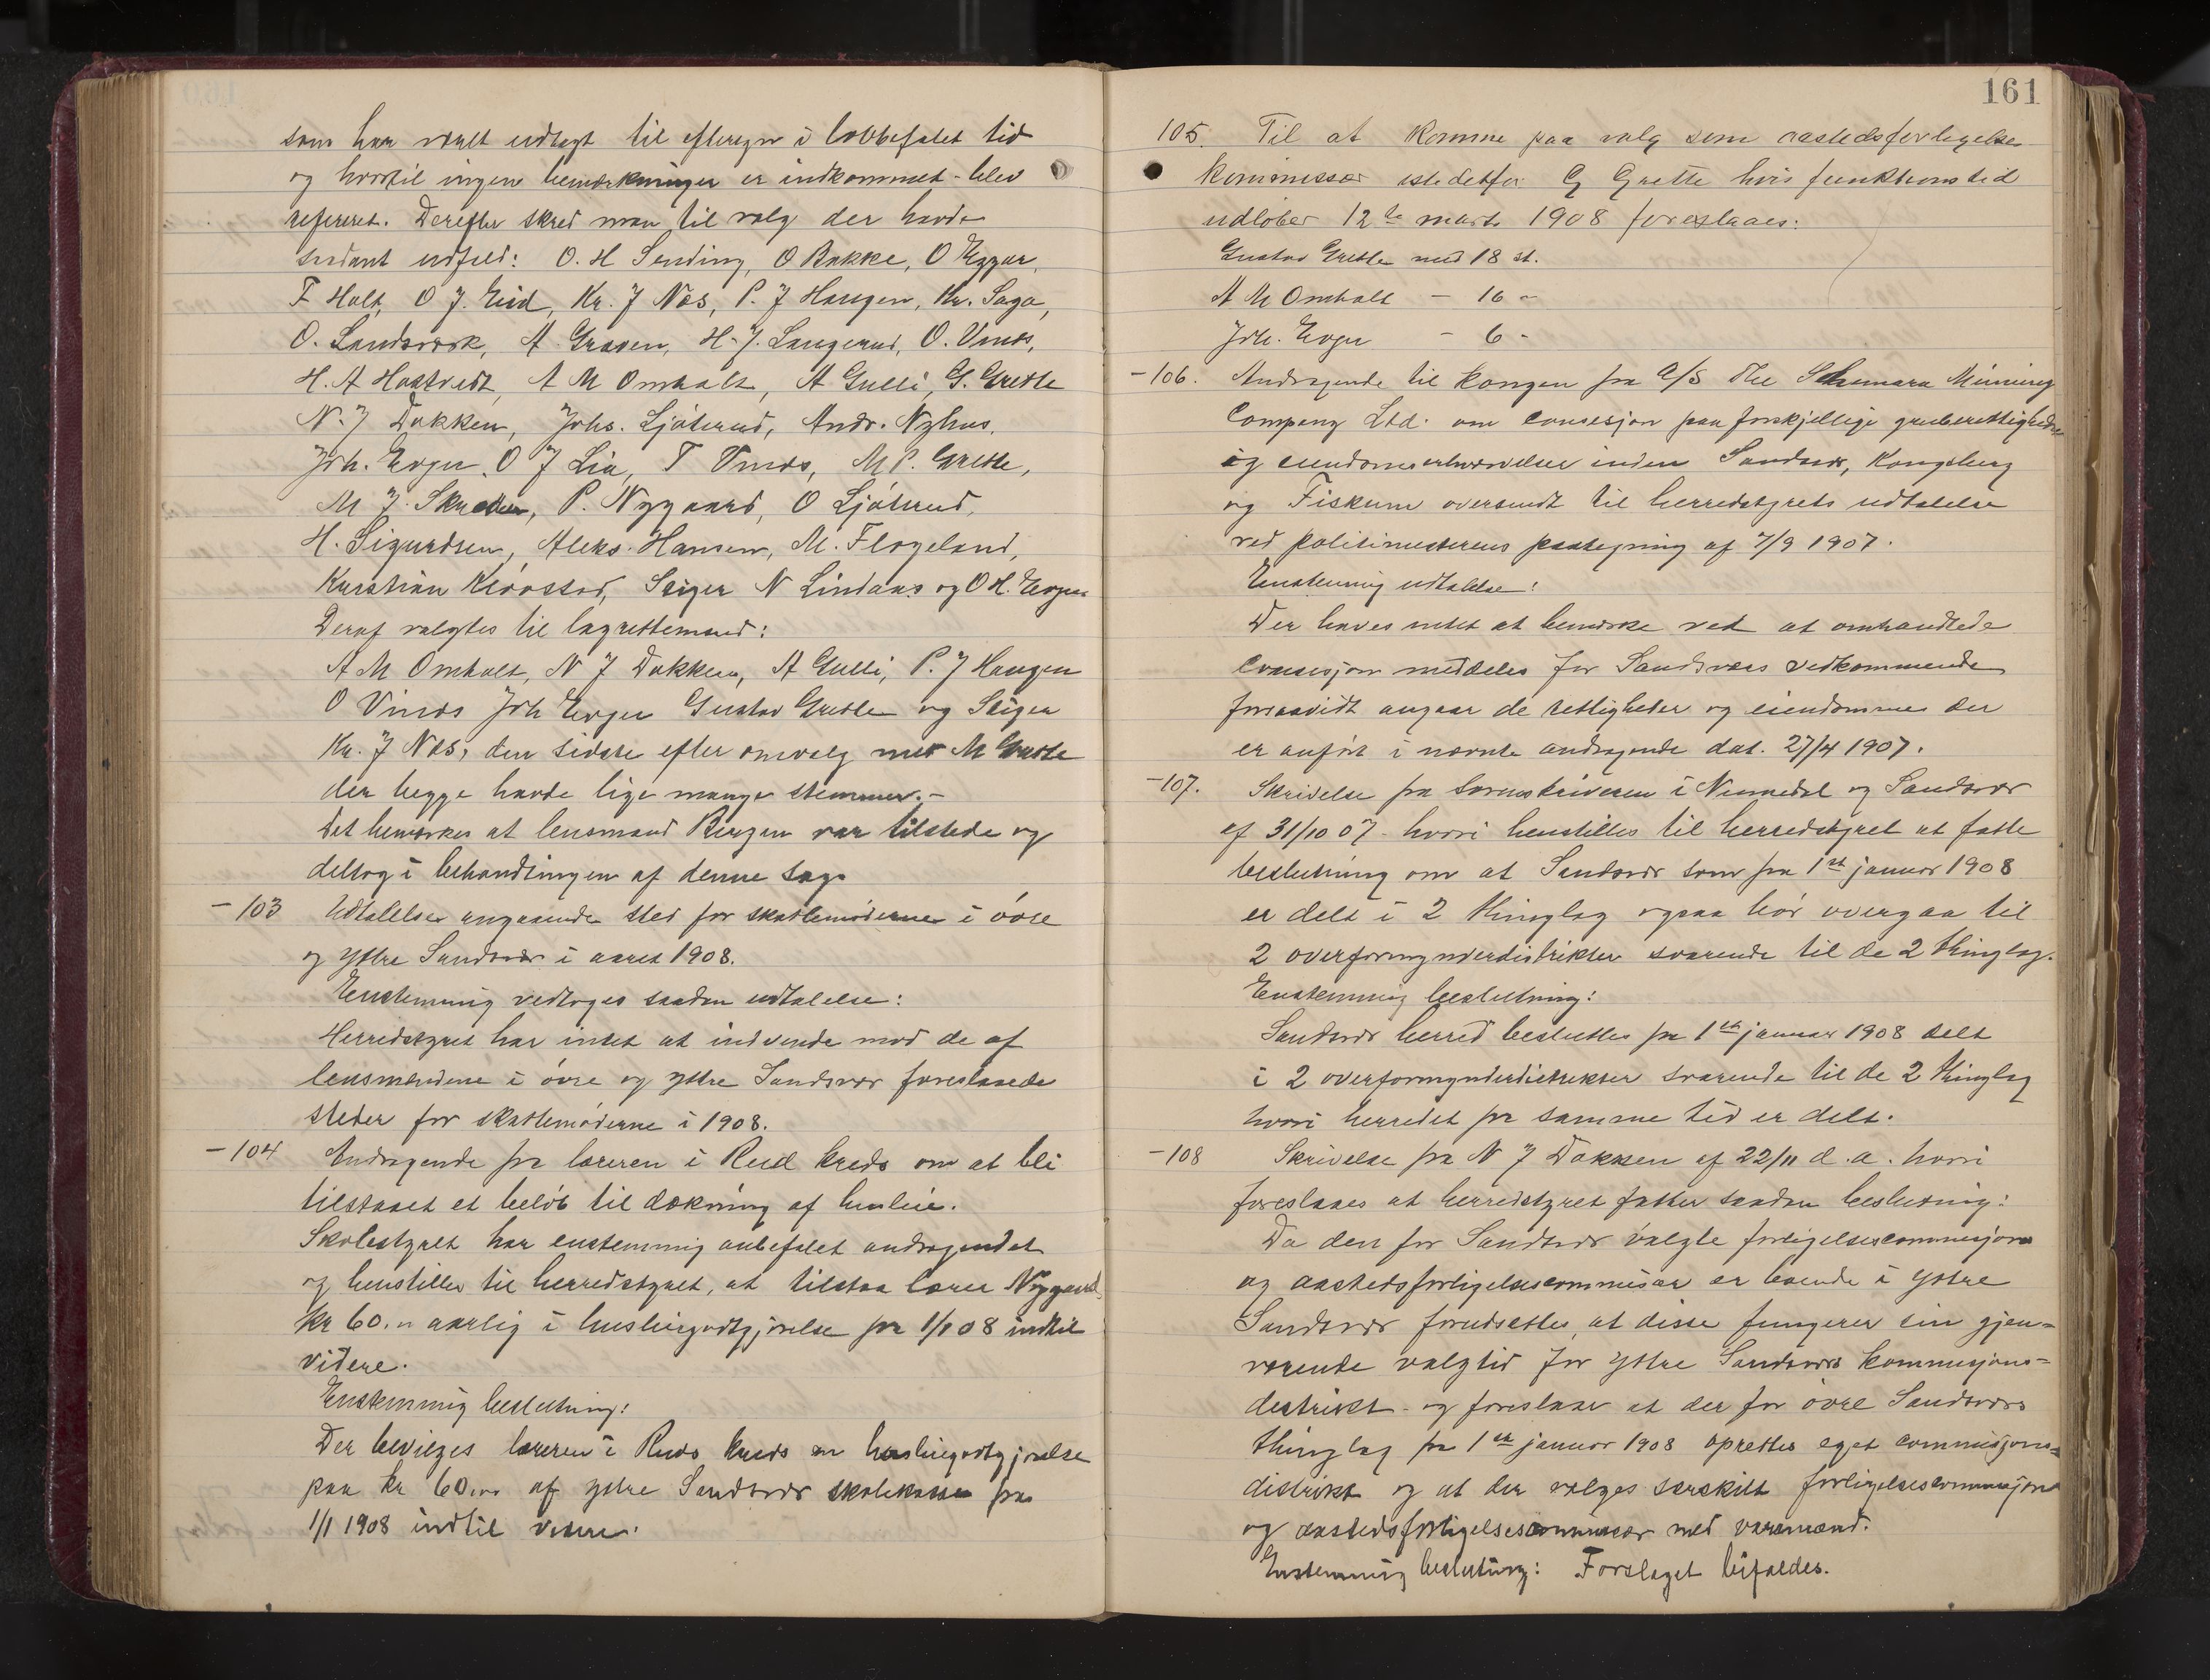 som har været udlagt til eftersyn i lovbefalet tid
og hvortil ingen bemærkninger er indkommet - blev
refereret. Derefter skred man til valg der havde
saadant udfald: O. H Sending, O Bakke, O Eggar,
F Holt, O J. Eid, Kr. J Næs, P. J Haugen, Kr. Saga,
O. Landsværk, A. Graven, H. J. Langerud, O. Vinæs,
H. A Hostvedt, A M Omholt, A Gulli, G. Grette
N. J Dokken, Johs. Ljøterud, Andr. Nyhus,
Joh. Evju, O J Lia, T Vinæs, M P. Grette,
M J. Skueden, P. Nygaard, O Ljøterud,
H. Sigurdsen, Aleks. Hansen, M. Flogeland,
Kristian Kløvstad, Seiger N Lindaas og O H. Evju
Deraf valgtes til lagrettemænd:
A M Omholt, N J Dokken, A Gulli, P. J Haugen
O Vinæs Joh Evju Gustav Grette og
Kr. J Næs, den sidste efter omvalg med M Grette
der begge havde lige mange stemmer. -
Det bemerkes at lensmand Bergan var tilstede og
deltog i behandlingen af denne sag.
- 103 Udtalelse angaaende sted for skattemøderne i øvre
og ytre Sandsvær i aaret 1908.
Enstemmig vedtoges saadan udtalelse:
Herredstyret har intet at indvende mod de af
lensmændene i øvre og ytre Sandsvær foreslaaede
steder for skattemøderne i 1908.
- 104 Andragende fra læreren i Rud kreds om at bli
tilstaaet et beløb til dækning af husleie.
Skolestyret har enstemmig anbefalet andragendet
og henstiller til herredstyret, at tilstaa lærer Nygaard
kr 60.00 aarlig i husleiegodtgjørelse fra 1/1 08 indtil
videre.
Enstemmig beslutning:
Der bevilges læreren i Ruds kreds en husleiegodtgjørelse
paa kr 60.00 af ytre Sandsvær skolekasse fra
1/1 1908 indtil videre.
161
105. Til at komme paa valg som aastedsforligelses-
kommissær istedetfor G Grette hvis funktionstid
udløber 12te marts 1908 foreslaaes:
Gustav Grette med 18 st.
A M Omholt - 16 -
Joh. Evju - 6 -
- 106. Andragende til kongen fra A/S The Mining
Company Ltd. om concesjon paa forskjellige gruberettigheder
og eiendomserhvervelser inden Sandsvær, Kongsberg
og Fiskum oversendt til herredstyrets udtalelse
ved politimesterens paategning af 7/9 1907.
Enstemmig udtalelse:
Der haves intet at bemærke ved at omhandlede
concesjon meddeles for Sandsværs vedkommende
forsaavidt angaar de rettigheter og eiendomme der
er anført i nævnte andragende dat. 27/4 1907.
- 107. Skrivelse fra sorenskriveren i Numedal og Sandsvær
af 31/10 07 - hvori henstilles til herredstyret at fatte
beslutning om at Sandsvær som fra 1st januar 1908
er delt i 2 thinglag ogsaa bør overgaa til
2 overformynderdistrikter svarende til de 2 thinglag.
Enstemmig beslutning:
Sandsvær herred besluttes fra 1st januar 1908 delt
i 2 overformynderdistrikter svarende til de 2 thinglag
hvori herredet fra samme tid er delt.
- 108 Skrivelse fra N J Dokken af 22/11 d. a. hvori
foreslaaes at herredstyret fatter saadan beslutning:
Da den for Sandsvær valgte forligelsescommisjon
og aastedsforligelsescommisær er boende i ytre
Sandsvær forudsættes, at disse fungerer sin gjen=
værende valgtid for ytre Sandsværs kommisjons=
distrikt - og foreslaar at der for øvre Sandsværs
thinglag fra 1st januar 1908 oprettes eget commisjons=
distrikt og at der vælges særskilt forligelsescommisjon
og aastedsforligelsescommisær med varamænd.
Enstemmig beslutning: Forslaget bifaldes.